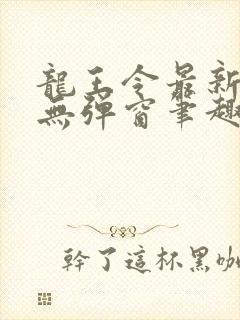 龍王令最新
無彈窗筆趣
幹了這杯黑咖